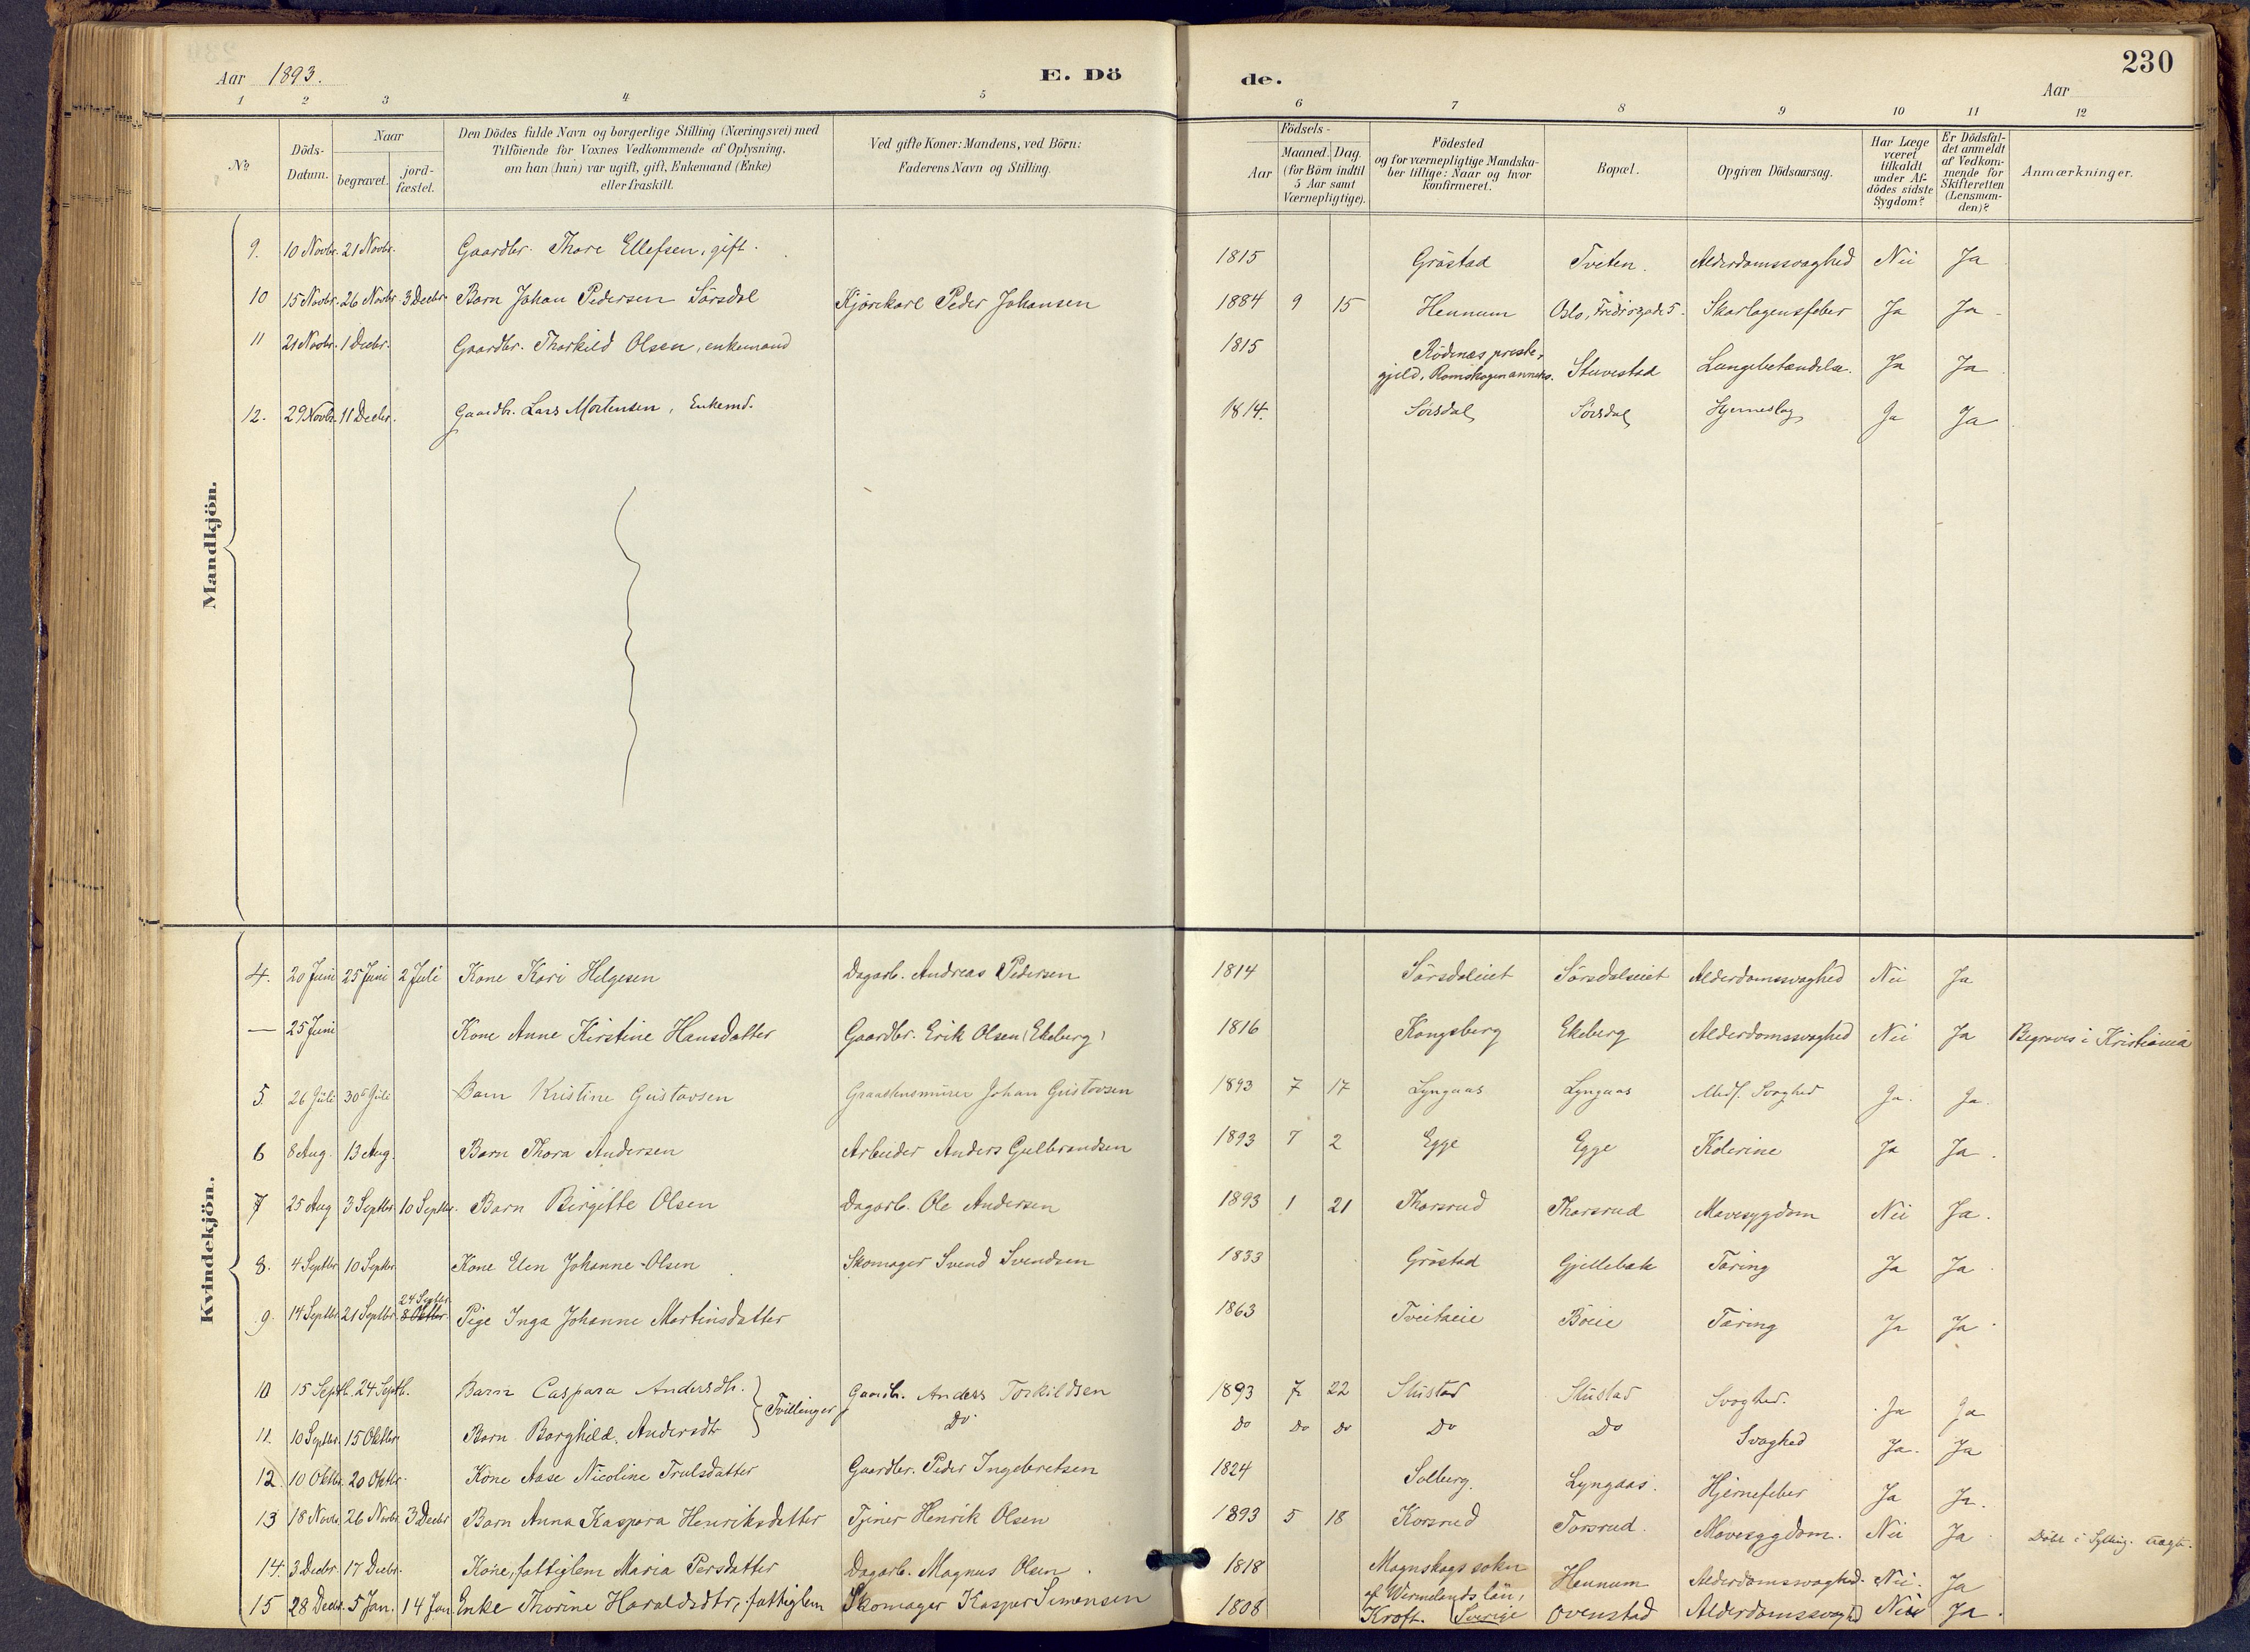 230
Aar 1893. E. Dö de. Aar
1 2 3 4 5 6 7 8 9 10 11 12
No
Döds-Datum.
Naar
begravet.
jord-fæstet.
Den Dödes fulde Navn og borgerlige Stilling (Næringsvei) med
Tilföiende for Voxnes Vedkommende af Oplysning,
om han (hun) var ugift, gift, Enkemand (Enke)
eller fraskilt.
Ved gifte Koner: Mandens, ved Börn:
Faderens Navn og Stilling.
Födsels-
Aar Maaned. Dag.
(for Börn indtil
5 Aar samt
Værnepligtige).
Födested
og for værnepligtige Mandska-
ber tillige: Naar og hvor
konfirmeret.
Bopæl.
Opgiven Dödsaarsag.
Har Læge
været
tilkaldt
under Af-
dödes sidste
Sygdom?
Er Dödsfal-
det anmeldt
af Vedkom-
mende for
Skifteretten
(Lensman-
den)?
Anmærkninger.
Mandkjön.
9. 10 Novbr. 21 Novbr. Gaardbr. Thore Ellefsen, gift. 1815 Gråstad Tveten. Alderdomssvaghed Nei Ja
10 15 Novbr. 26 Novbr 3 Decbr Barn Johan Pedersen Sörsdal Kjörekarl Peder Johansen 1884 9 15 Hennum Oslo, 5. Skarlagensfeber Ja Ja
11 21 Novbr. 1 Decbr. Gaardbr. Thorkild Olsen, enkemand 1815 Rödenes preste-
gjeld, Romskogen anneks. Stuvestad Lungebetændelse. Ja Ja
12. 29 Novbr. 11 Decbr. Gaardbr. Lars Mortensen, Enkemd. 1814. Sörsdal Sörsdal Hjerneslag Ja Ja
Kvindekjön.
4. 20 Juni 25 Juni 2 Juli Kone Kari Helgesen Dagarb. Andreas Pedersen 1814 Sörsdaleiet Sörsdalseiet Alderdomssvaghed Nei Ja
— 25 Juni Kone Anne Kirstine Hansdatter Gaardbr. Erik Olsen (Ekeberg) 1816 Kongsberg Ekeberg Alderdomssvaghed Nei Ja Begraves i Kristiania
5. 26 Juli 30 Juli Barn Kristine Gustavsen Graastensmurer Johan Gustavsen 1893 7 17 Lyngaas Lyngaas Medf. Svaghed Ja. Ja.
6 8 Aug. 13 Aug. Barn Thora Andersen Arbeider Anders Gulbrandsen 1893 7 2 Egge Egge Kolerine Ja Ja.
7 25 Aug 3 Septbr 10 Septbr. Barn Birgitte Olsen Dagarb. Ole Andersen 1893 1 21 Thorsrud Thorsrud Mavesygdom Nei Ja.
8. 4 Septbr 10 Septbr. Kone Elen Johanne Olsen Skomager Svend Svendsen 1833 Gråstad Gjellebæk Tæring Ja Ja.
24 Septbr.
9. 14 Septbr. 21 Septbr. 8 Oktbr. Pige Inga Johanne Martinsdatter 1863 Tveitaeie Böeie Tæring Ja Ja.
10 15 Septb. 24 Septb. Barn Caspara Andersdtr. Tvillinger Gaardb. Anders Torkildsen 1893 7 22 Stustad Stustad Svaghed. Ja Ja
11. 10 Septbr. 15 Oktbr Barn Borghild Andersdtr Do Do Do Do Do Do Svaghed Ja. Ja
12. 10 Oktbr. 20 Oktbr. Kone Aase Nicoline Trulsdatter Gaardbr. Peder Ingebretsen 1824 Solberg. Lyngaas. Hjernefeber Ja Ja.
13 18 Novbr. 26 Novbr. 3 Decbr Barn Anna Kaspara Henriksdatter Tjener Henrik Olsen 1893 5 18 Korsrud Torsrud. Mavesygdom. Nei Ja Döbt i Sylling
14. 3 Decbr. 17 Decbr. Kone, fattiglem Maria Persdatter Dagarb. Magnus Olsen 1818 Magnskogs sokn
af Wermelands län, Sverige Hennum Alderdomssvaghed. Nei. Ja
15 28 Decbr. 5 Jan. 14 Jan Enke Thorine Haraldsdtr, fattiglem Skomager Kasper Simensen 1808 Kroft. Ovenstad Alderdomssvaghed Nei Ja.